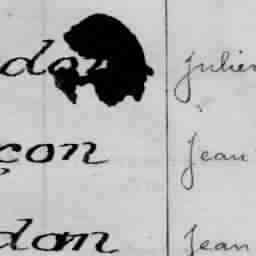 don Julien
çon Jean
don Jean